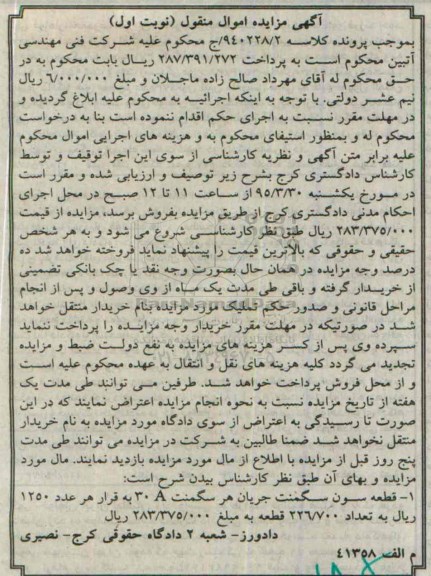 آگهی مزایده اموال منقول (نوبت اول)
بموجب پرونده کلاسه ۹۴۰۲۲۸/۲/ج محکوم علیه شرکت فنی مهندسی
آتیین محکوم است به پرداخت ۲۸۷/۳۹۱/۲۷۲ ریال بابت محکوم به در
حق محکوم له آقای مهرداد صالح زاده ماجلان و مبلغ ۶/۰۰۰/۰۰۰ ریال
نیم عشر دولتی. با توجه به اینکه اجرائیه به محکوم علیه ابلاغ گردیده و
در مهلت مقرر نسبت به اجرای حکم اقدام ننموده است بنا به درخواست
محکوم له و بمنظور استیفای محکوم به و هزینه های اجرایی اموال محکوم
علیه برابر متن آگهی و نظریه کارشناسی از سوی این اجرا توقیف و توسط
کارشناس دادگستری کرج بشرح زیر توصیف و ارزیابی شده و مقرر است
در مورخ یکشنبه ۹۵/۳/۳۰ از ساعت ۱۱ تا ۱۲ صبح در محل اجرای
احکام مدنی دادگستری کرج از طریق مزایده بفروش برسد، مزایده از قیمت
۲۸۳/۳۷۵/۰۰۰ ریال طبق نظر کارشناسی شروع می شود و به هر شخص
حقیقی و حقوقی که بالاترین قیمت را پیشنهاد نماید فروخته خواهد شد ده
درصد وجه مزایده در همان حال بصورت وجه نقد یا چک بانکی تضمینی
از خریدار گرفته و باقی طی مدت یک ماه از وی وصول و پس از انجام
مراحل قانونی و صدور حکم تملیک مورد مزایده بنام خریدار منتقل خواهد
شد در صورتیکه در مهلت مقرر خریدار وجه مزایده را پرداخت ننماید
سپرده وی پس از کسر هزینه های مزایده به نفع دولت ضبط و مزایده
تجدید می گردد کلیه هزینه های نقل و انتقال به عهده محکوم علیه است
و از محل فروش پرداخت خواهد شد. طرفین می توانند طی مدت یک
هفته از تاریخ مزایده نسبت به نحوه انجام مزایده اعتراض نمایند که در این
صورت تا رسیدگی به اعتراض از سوی دادگاه مورد مزایده به نام خریدار
منتقل نخواهد شد ضمنا طالبین به شرکت در مزایده می توانند طی مدت
پنج روز قبل از مزایده با اطلاع از مال مورد مزایده بازدید نمایند. مال مورد
مزایده و بهای آن طبق نظر کارشناس بدین شرح است:
۱- قطعه سون سگمنت جریان هر سگمنت ۳۰ A به قرار هر عدد ۱۲۵۰
ریال به تعداد ۲۲۶/۷۰۰ قطعه به مبلغ ۲۸۳/۳۷۵/۰۰۰ ریال
دادورز- شعبه ۲ دادگاه حقوقی کرج- نصیری
م الف ۴۱۳۵۸